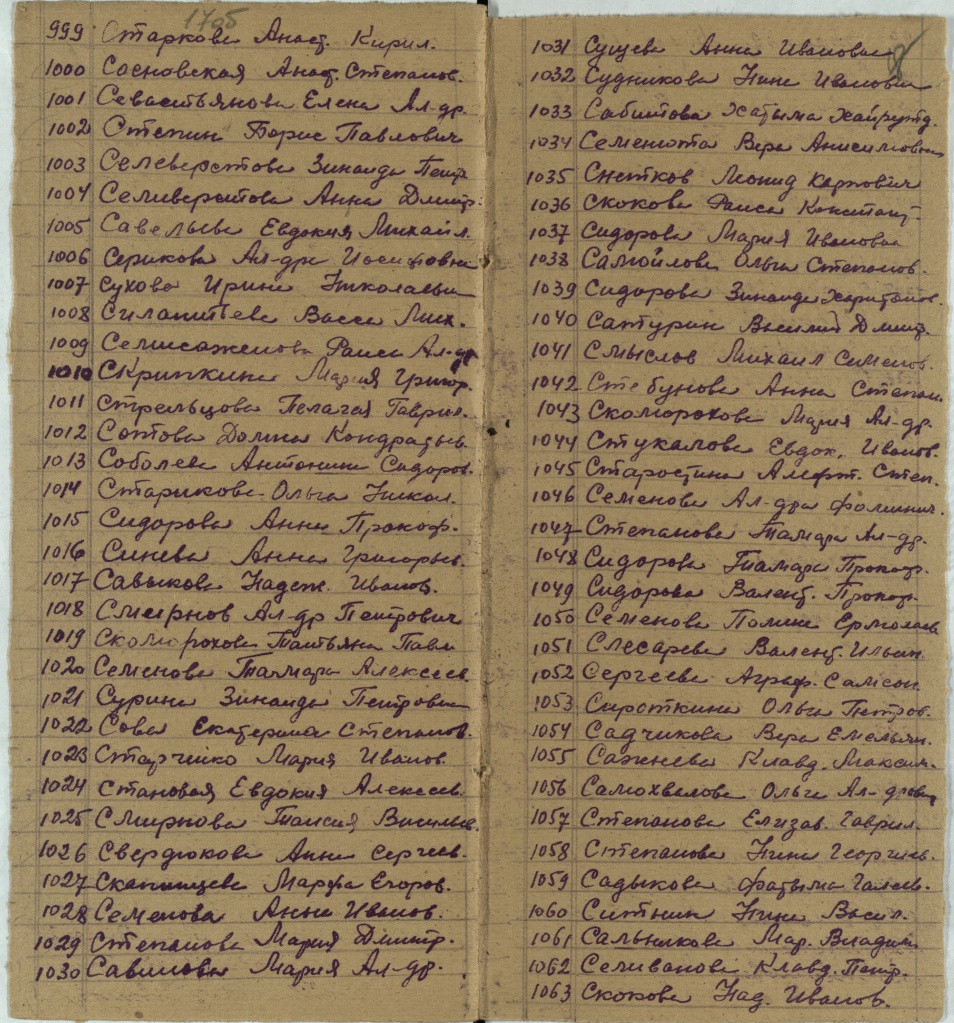 1705
999 Старкова Анаст. Кирил.
1000 Сосновская Анаст. Степанов.
1001 Севастьянова Елена Ал-др.
1002 Степин Борис Павлович
1003 Селеверстова Зинаида Петр
1004 Селиверстова Анна Дмитр.
1005 Савельева Евдокия Михайл.
1006 Серикова Ал-дра Иосифовна
1007 Сухова Ирина Николаевн
1008 Силантьева Васса Мих.
1009 Семисаженова Раиса Ал-др
1010 Скрипкина Мария Григор.
1011 Стрельцова Пелагея Гаврил.
1012 Сотова Домна Кондратьев
1013 Соболева Антонина Сидоров.
1014 Старикова Ольга Никол.
1015 Сидорова Анна Прокоф.
1016 Синева Анна Григорьев.
1017 Савыкова Надеж. Иванов.
1018 Смирнов Ал-др Петрович
1019 Скоморохова Татьяна Павл
1020 Семенова Тамара Алексеев.
1021 Сурина Зинаида Петровна
1022 Сова Екатерина Степанов.
1023 Старченко Мария Иванов.
1024 Становая Евдокия Алексеев.
1025 Смирнова Таисия Васильев.
1026 Свердюкова Анна Сергеев.
1027 Скапинцева Марфа Егоров.
1028 Семенова Анна Иванов.
1029 Степанова Мария Дмитр.
1030 Савинова Мария Ал-др.
1031 Сущева Анна Ивановна
1032 Судникова Нина Ивановна
1033 Сабитова Хатыма Хайрутд.
1034 Семенюта Вера Анисимовна
1035 Снетков Леонид Карпович
1036 Скокова Раиса Констант
1037 Сидорова Мария Ивановна
1038 Самойлова Ольга Степанов.
1039 Сидорова Зинаида Харитонов.
1040 Сатурин Василий Дмитр.
1041 Смыслов Михаил Семенов.
1042 Стебунова Анна Степан
1043 Скоморохова Мария Ал-др.
1044 Стукалова Евдок. Иванов.
1045 Старостина Алефт. Степ.
1046 Семенова Ал-дра Филипич.
1047 Степанова Тамара Ал-др.
1048 Сидорова Тамара Прокоф.
1049 Сидорова Валент. Прокоф.
1050 Семенова Полина Ермолаев
1051 Слесарева Валент. Ильин.
1052 Сергеева Аграф. Самсон.
1053 Сироткина Ольга Петров.
1054 Садчикова Вера Емельян.
1055 Саженева Клавд. Максим.
1056 Самохвалова Ольга Ал-дровн
1057 Степанова Елизав. Гаврил.
1058 Степанова Нина Георгиев.
1059 Садыкова Фатыма Галеев.
1060 Ситник Нина Васил.
1061 Сальникова Мар. Владим
1062 Селиванова Клавд. Петр.
1063 Скокова Над. Иванов.